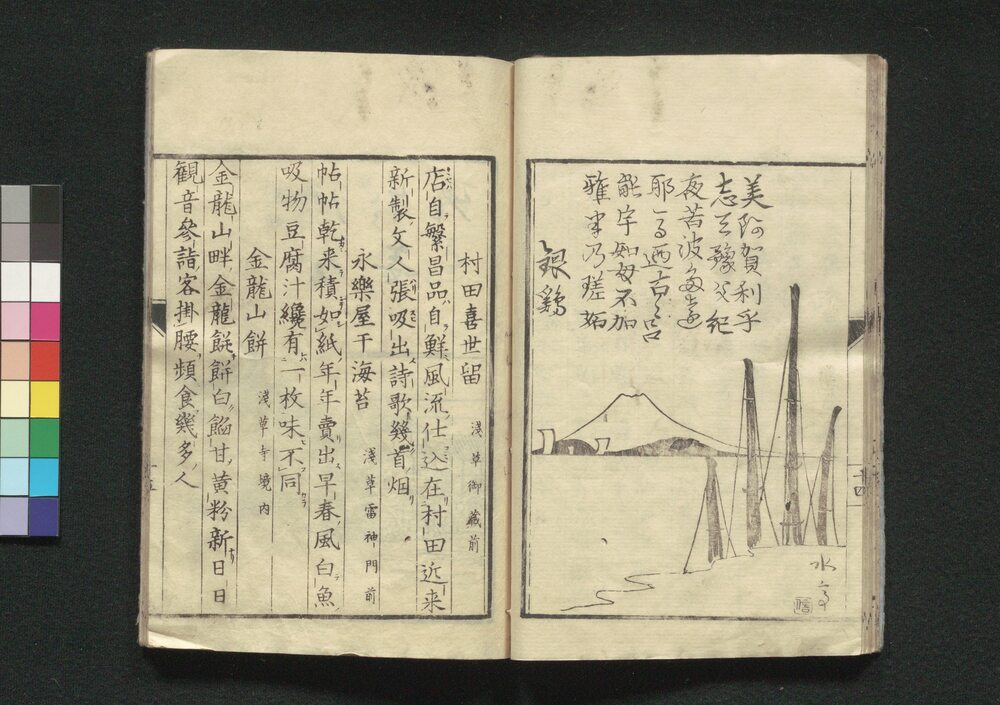 美阿賀利乎
志
夜若波
耶
能宇如毋不加
雅
銀鷄
水亭
十四
村田喜世留 淺草御藏前
店自繁昌品自鮮風流仕込在村田近来
新製文人張吸出詩歌幾首烟
永樂屋干海苔 淺草雷神門前
帖帖乾来積如紙年年賣出早春風白魚
吸物豆腐汁纔有一枚味不同
金龍山餅 淺草寺境内
金龍山畔金龍餅餅白餡甘黄粉新日日
観音參詣客掛腰頻食幾多人